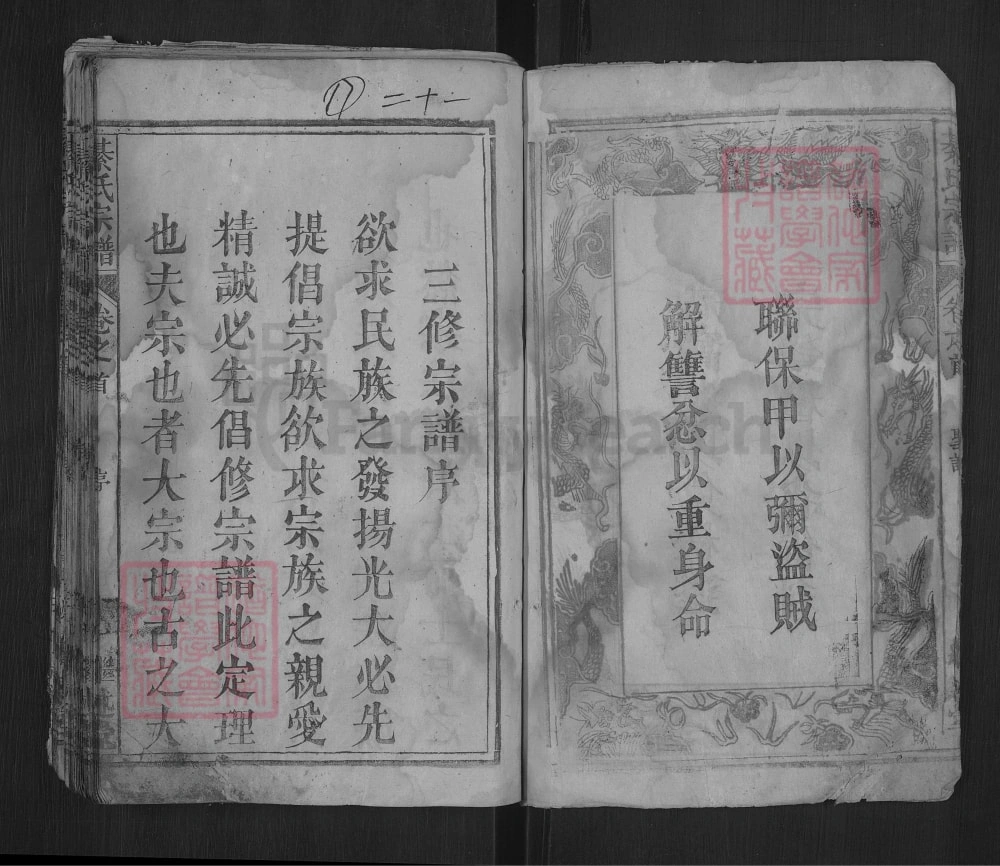 聯保甲以彌盜賊
解讐忿以重身命
① 二十一
三修宗譜序
欲求民族之發揚光大必先
提倡宗族欲求宗族之親愛
精誠必先倡修宗譜此定理
也夫宗也者大宗也古之大
綦氏宗譜
卷之首
序
FamilySearch